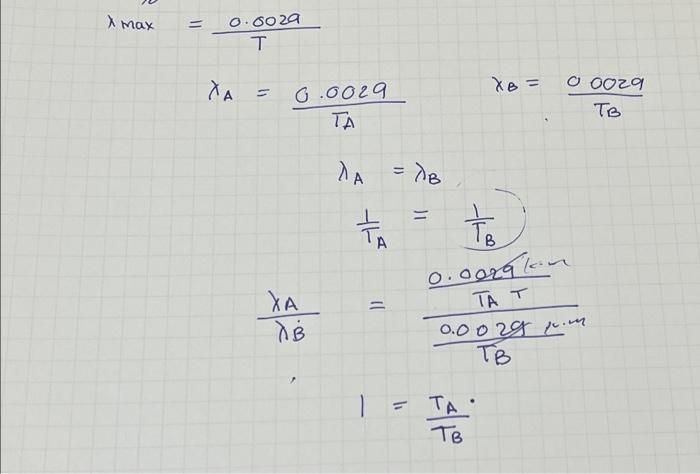 λ max = 0.0029 / T
λA = 0.0029 / TA λB = 0.0029 / TB
λA = λB
1 / TA = 1 / TB
λA / λB = 0.0029 k·m / TA T / 0.0029 k·m / TB
1 = TA / TB